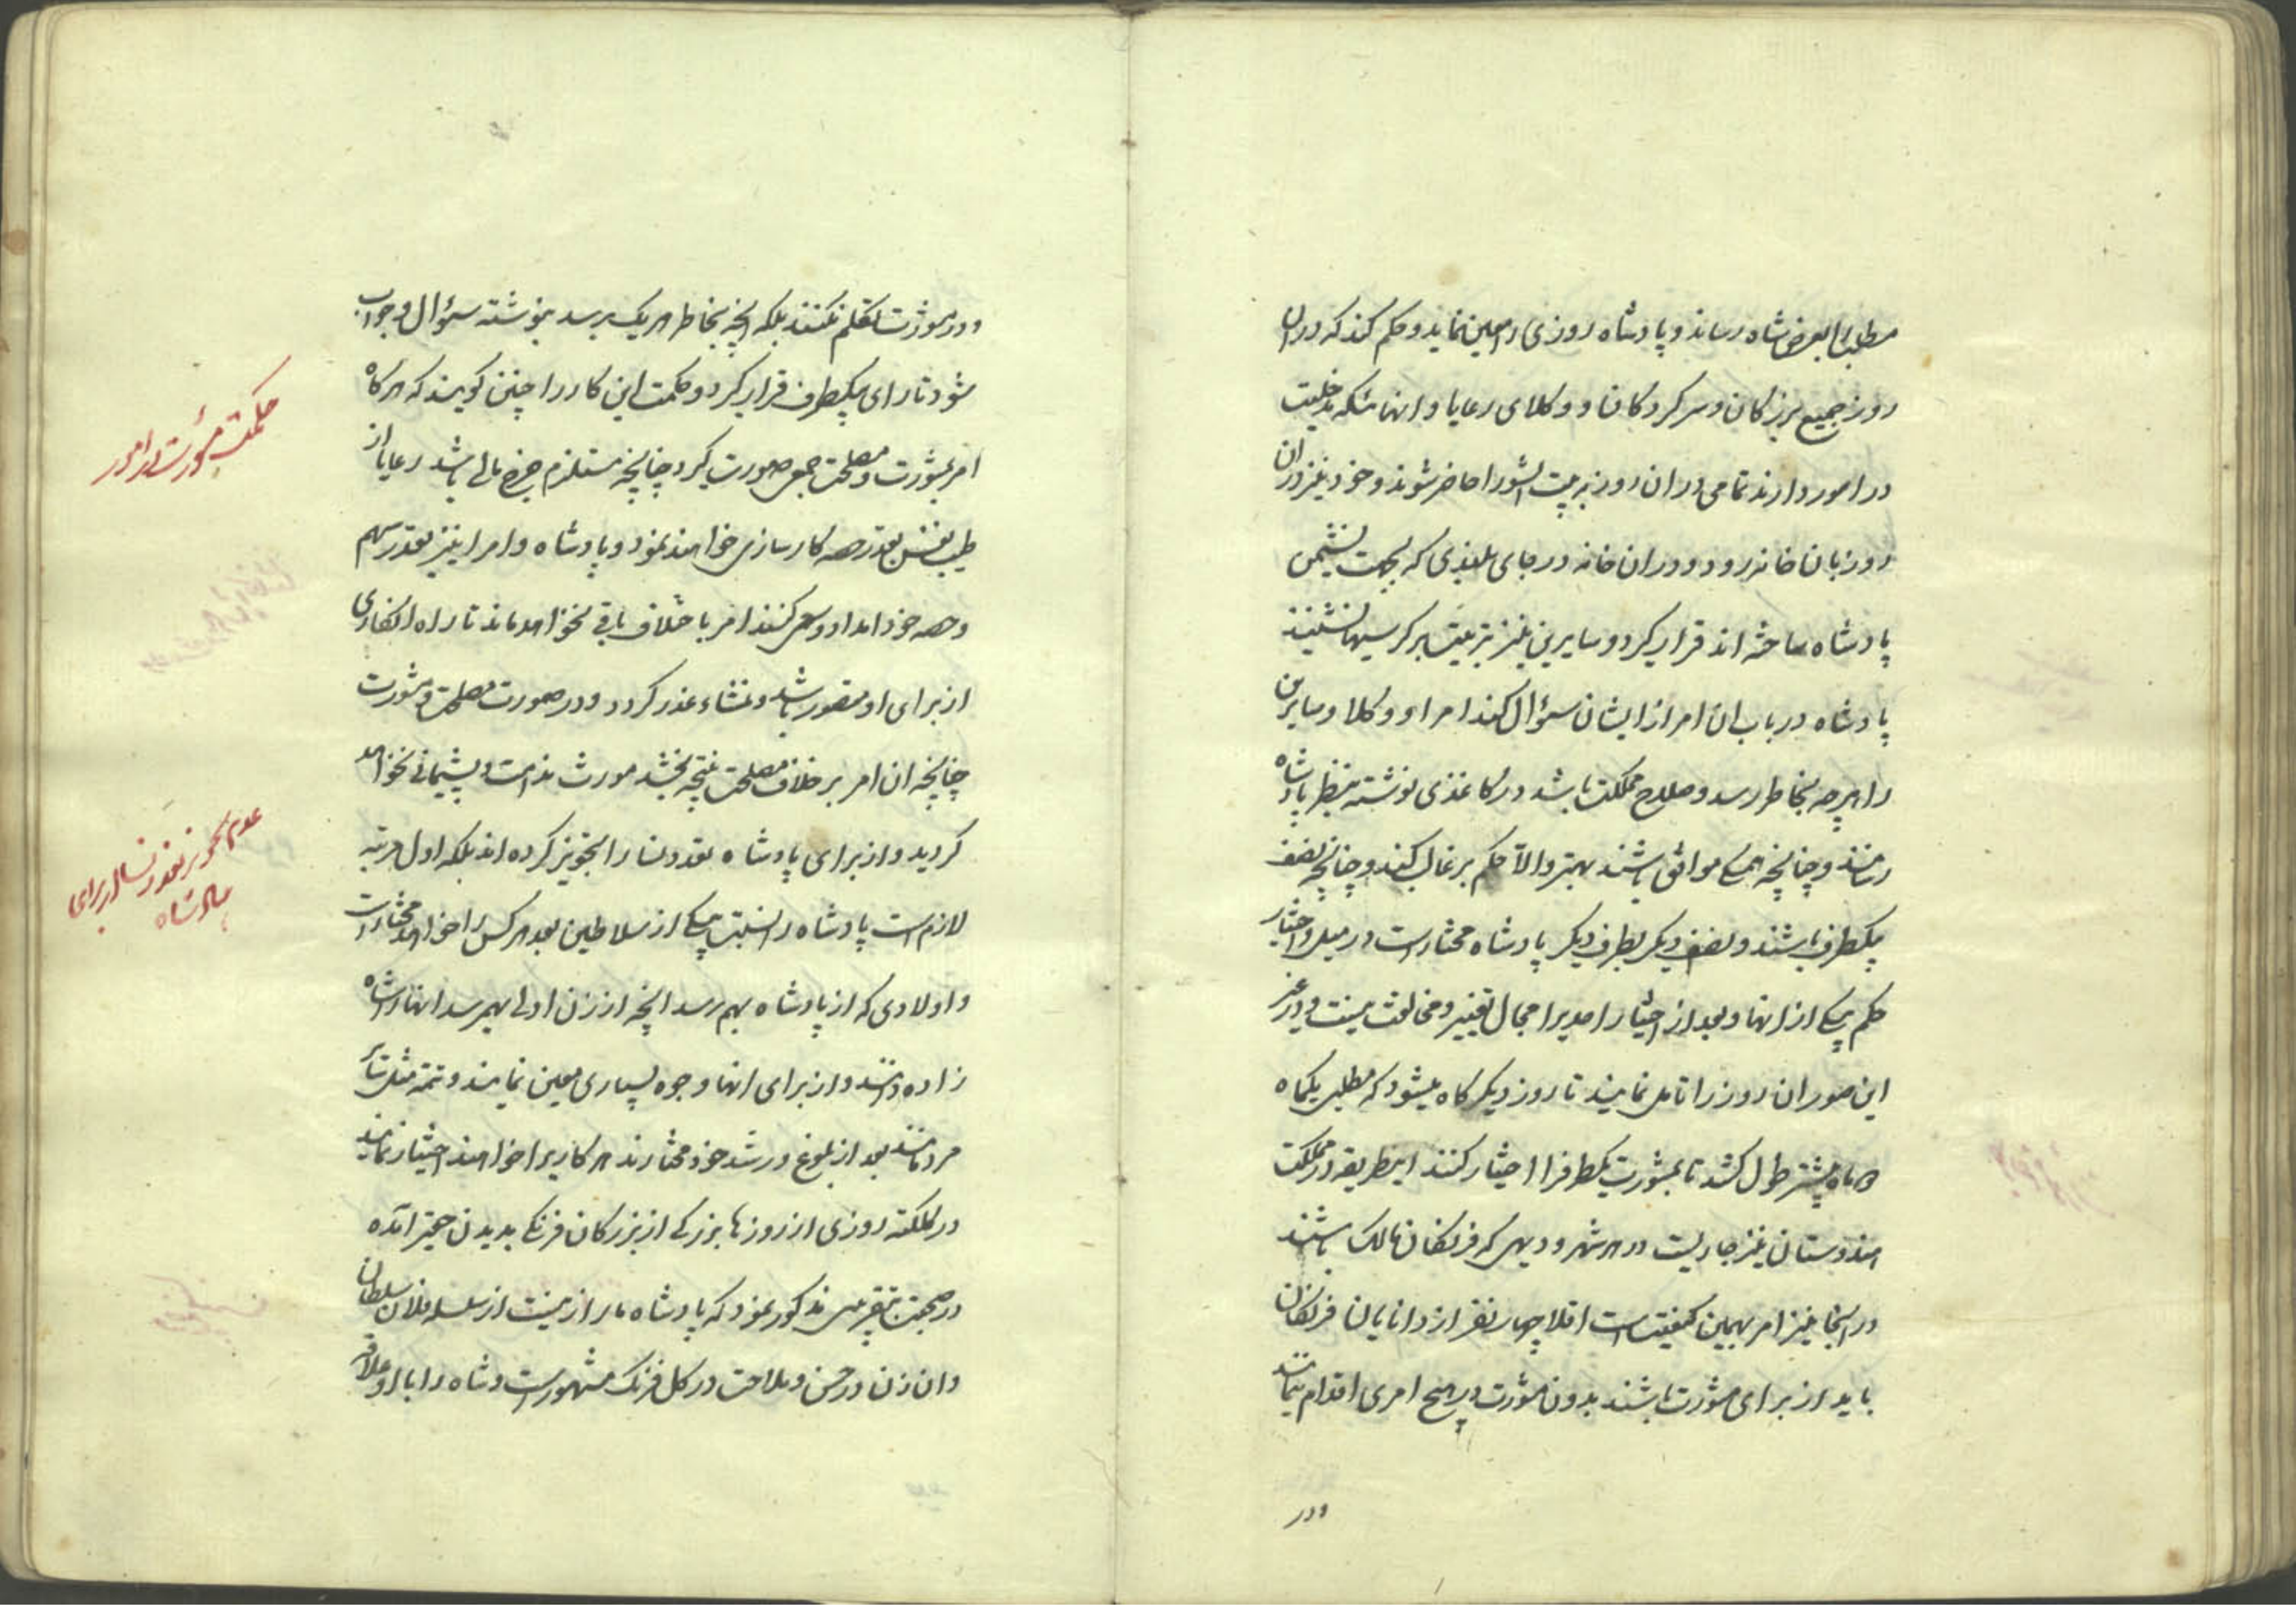 مطلب را بعرض شاه رساند و پادشاه روزی را معین نماید و حکم کند که در ان
روز جمیع بزرکان و سرکردکان و وکلای رعایا و انهائیکه مدخلیت
در امور دارند تمامی در ان روز به بیت الشورا حاضر شوند و خود نیز در ان
روز بان خانه رود و در ان خانه در جای بلندی که بجهت نشیمن
پادشاه ساخته اند قرار کیرد و سایرین نیز بترتیب بر کرسیها نشینند
پادشاه در باب ان امر از ایشان سؤال کند امرا و وکلا و سایرین
را هرچه بخاطر رسد و صلاح مملکت باشد در کاغذی نوشته بنظر پادشاه
رسانند و چنانچه همکی موافق باشند بهتر والّا حکم بر غالب کنند و چنانچه نصف
یکطرف باشند و نصف دیکر بطرف دیکر پادشاه مختار است در میل و اختیار
حکم یکی از انها و بعد از اختیار احدیرا مجال تغییر و مخالفت نیست و در غیر
این صور ان روز را تامل نمایند تا روز دیکر کاه میشود که مطلبی یکماه
ماه بیشتر طول کشد تا بمشورت یکطرفرا اختیار کنند اینطریقه در مملکت
هندوستان نیز جاریست در هر شهر و دیهی که فرنکان مالک باشند
در انجا نیز امر بهمین کیفیت است اقلا چهار نفر از دانایان فرنکان
باید از برای مشورت باشند بدون مشورت بهیچ امری اقدام ننمایند
و در
و در مشورت تکلم نکنند بلکه انچه بخاطر هر یک برسد بنوشته سؤال و جواب
شود تا رای بیکطرف قرار کیرد و حکمت این کار را چنین کویند که هر کاه
امر بمشورت و مصلحت جمعی صورت کیرد چنانچه مستلزم خرج مالی باشد رعایا از
طیب نفس بقدر حصه کارسازی خواهند نمود و پادشاه و امرا نیز بقدر سهم
و حصه خود امداد و سعی کنند امر باختلاف باقی نخواهد ماند تا راه انکاری
از برای او متصور باشد و منشاء عذر کردد و در صورت مصلحت و مشورت
چنانچه ان امر بر خلاف مصلحت نتیجه بخشد مورث ندامت و پشیمانی نخواهد
کردید و از برای پادشاه تعدد نسا را تجویز نکرده اند بلکه اول مرتبه
لازم است پادشاه را نسبت بیکی از سلاطین بعد هر کس را خواهد مختار است
و اولادی که از پادشاه بهم رسد انچه از زن اولی بهم رسد انها را شاه
زاده دانند و از برای انها وجوه بسیاری معین نمایند و تتمه مثل سایر
مردمانند بعد از بلوغ و رشد خود مختارند هر کاریرا خواهند اختیار نمایند
در کلکته روزی از روزها بزرکی از بزرکان فرنکی بدیدن حقیر امده
در صحبت بتقریبی مذکور نمود که پادشاه ما را زنیست از سلسله فلان سلطان
و ان زن در حسن و ملاحت در کل فرنک مشهور است و شاه را با او علاقه
حکمت مشورت در امور
عدم تجویز تعدد نسا از برای
پادشاه